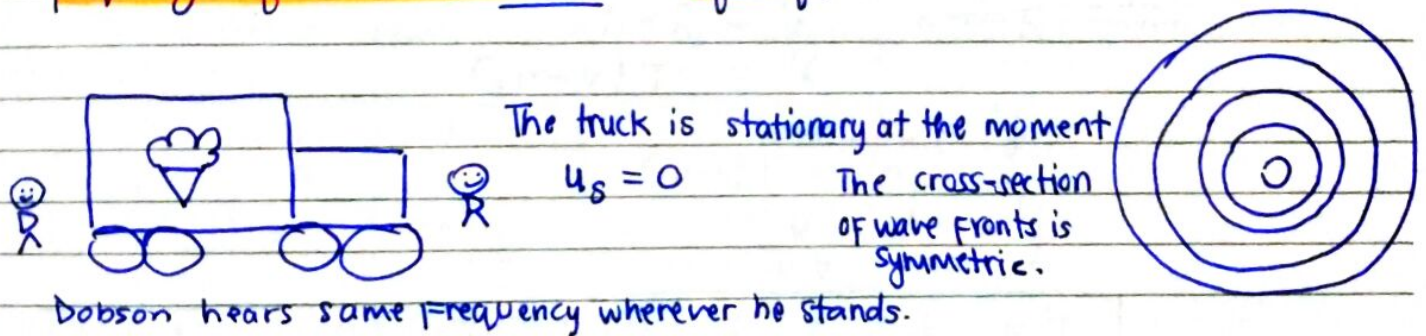 The truck is stationary at the moment
u_s = 0
The cross-section
of wave fronts is
symmetric.
Dobson hears same frequency wherever he stands.